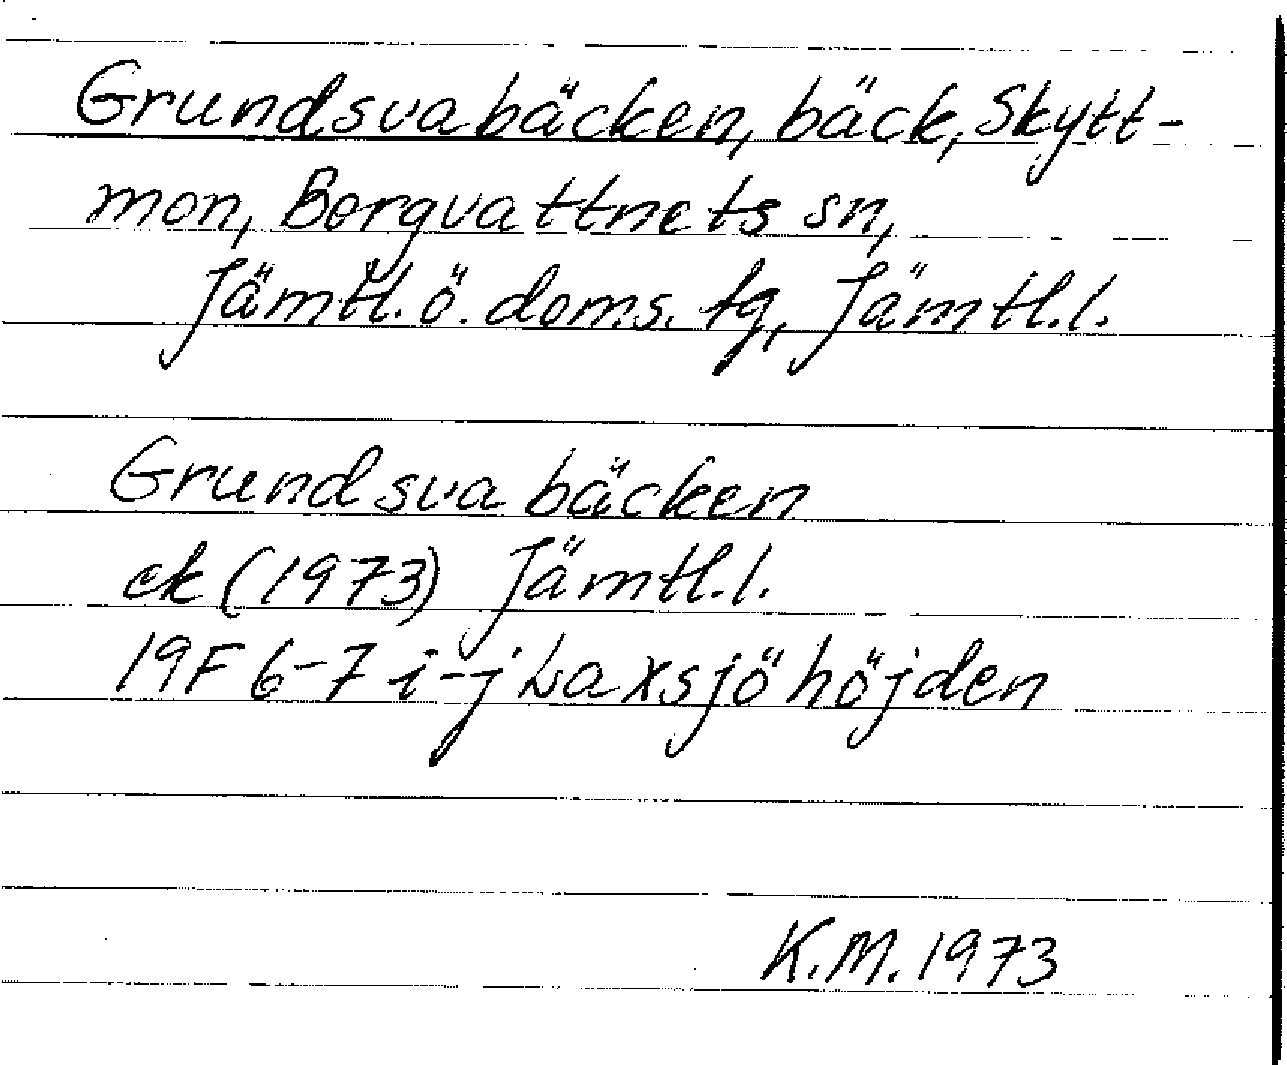 Grundsvabäcken, bäck, Skytt-
mon, Borgvattnets sn,
Jämtl. ö. doms. tg, Jämtl. l.
Grundsvabäcken
ek (1973) Jämtl. l.
19F 6-7 i-j Laxsjöhöjden
K.M. 1973